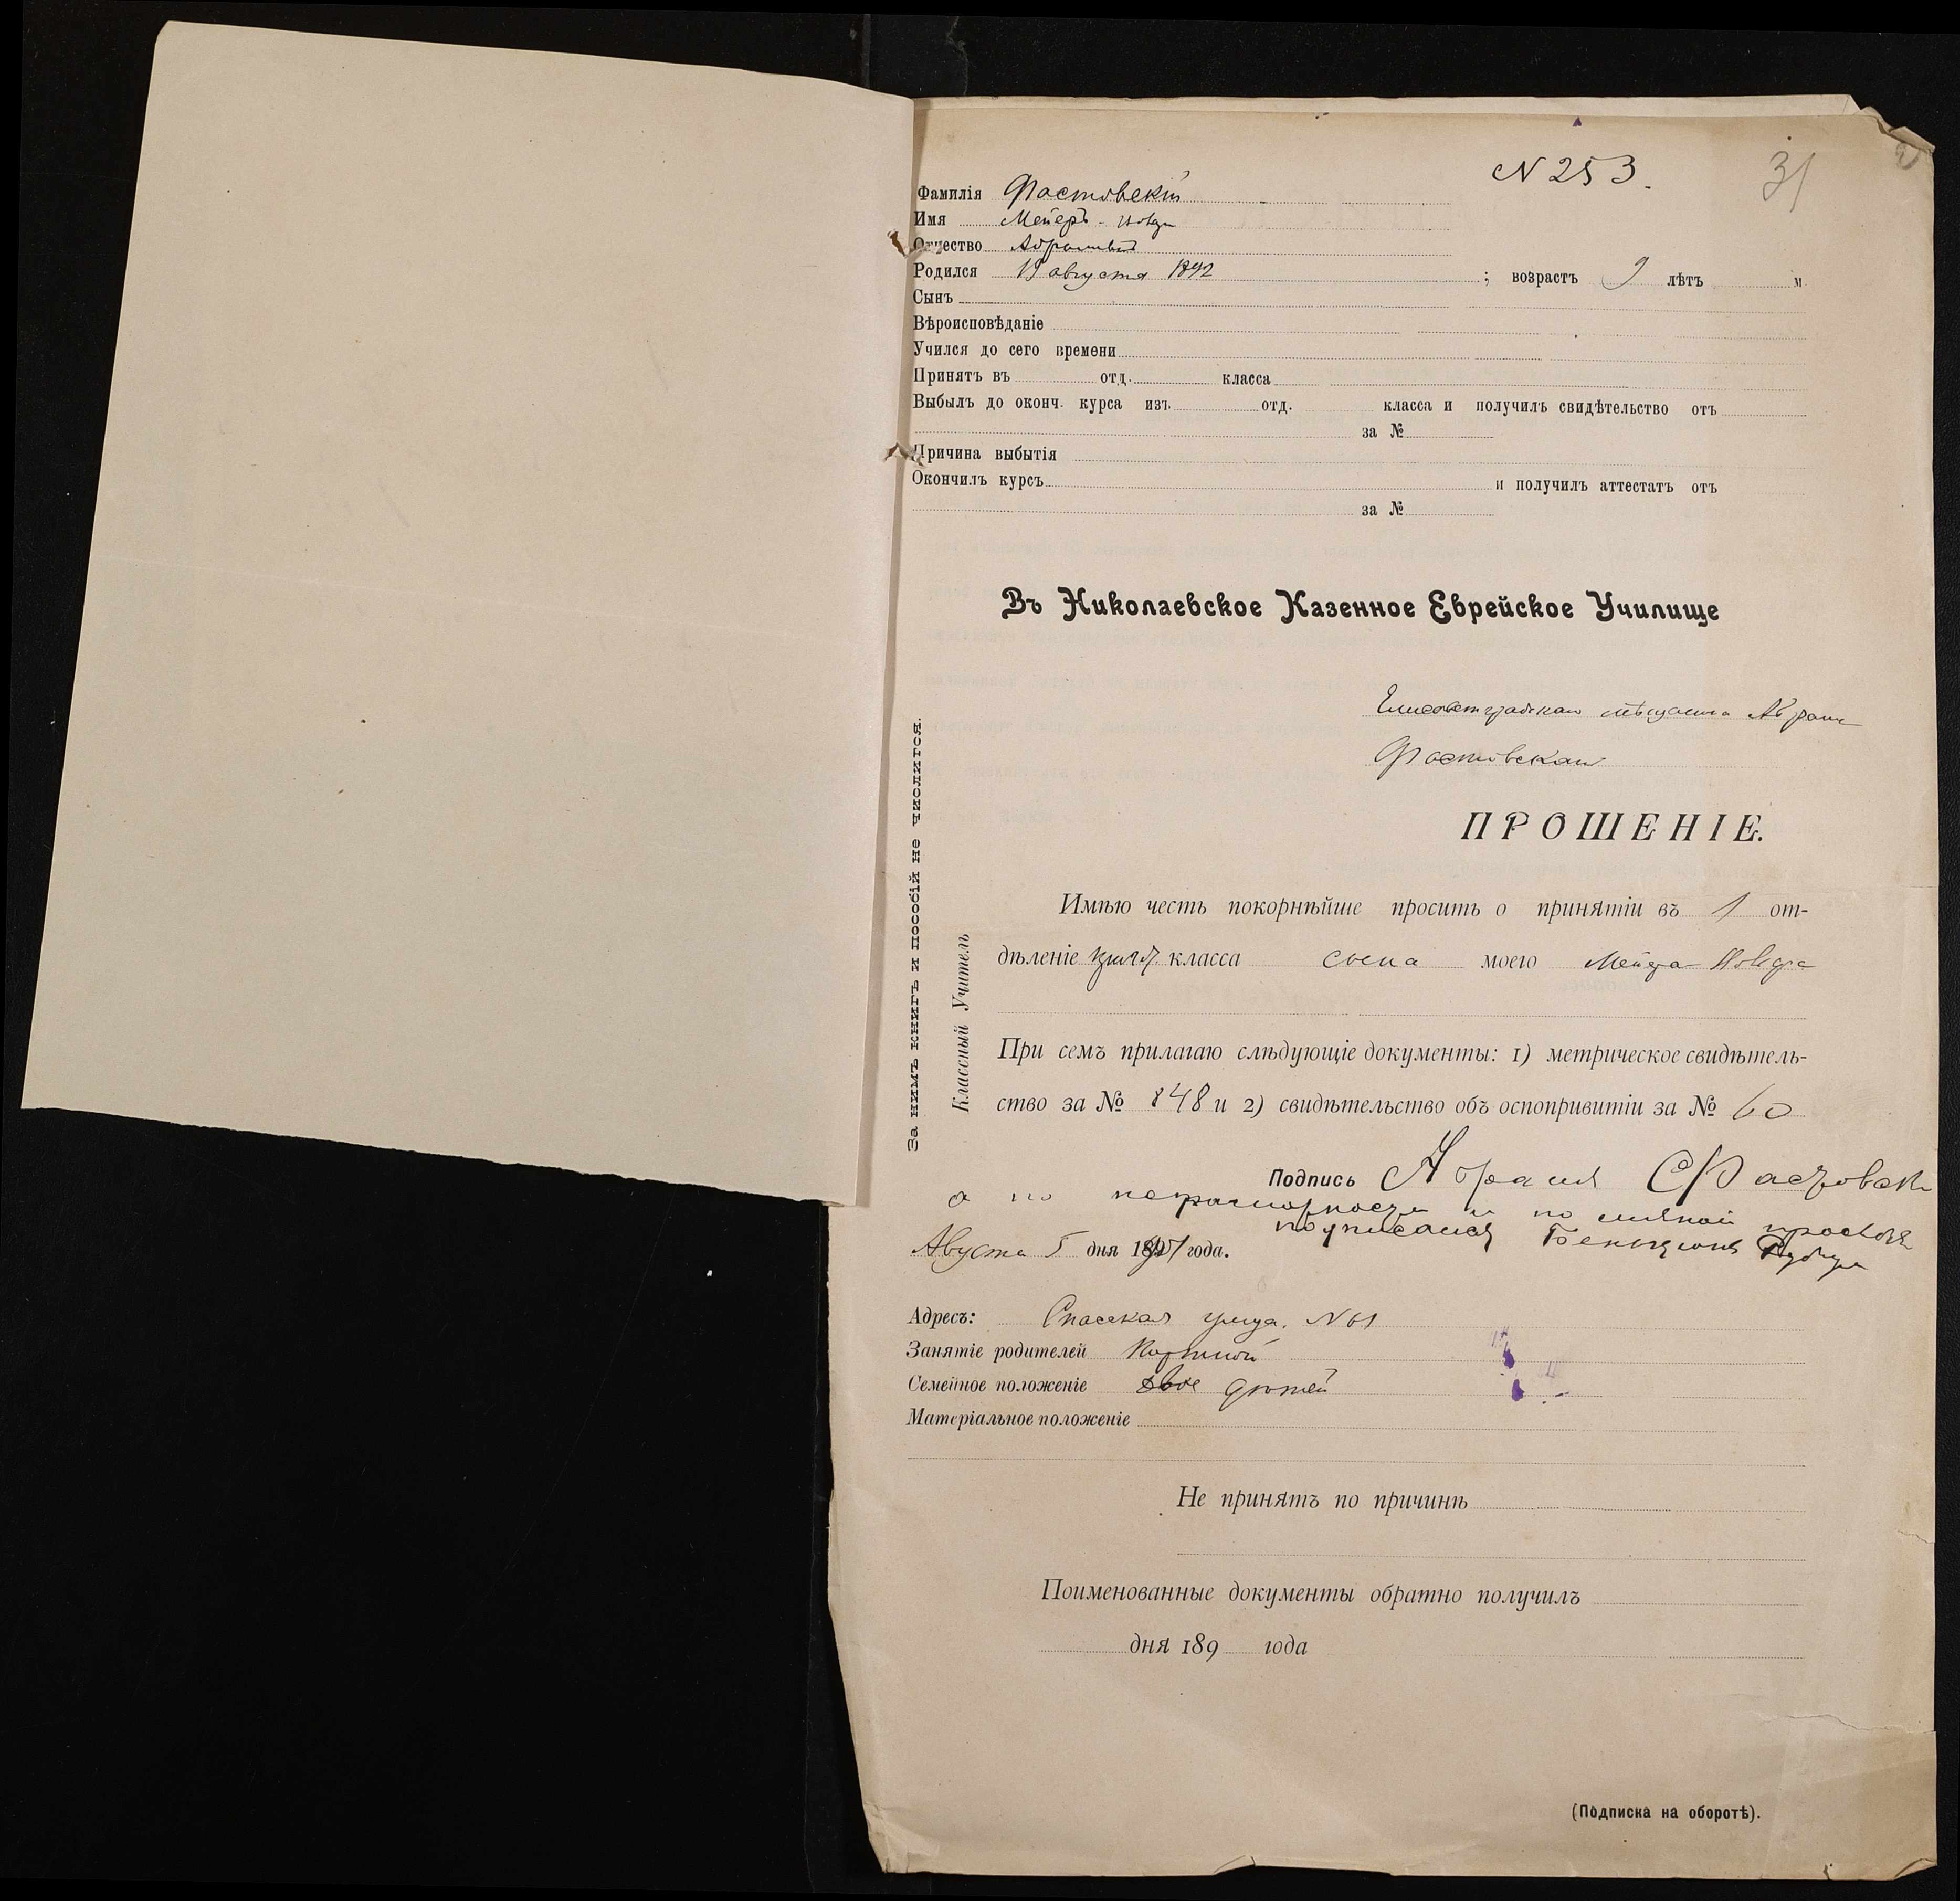 N 253. 31
Фамилія Фастовскій
Имя Мейеръ-
Отчество Абрамовъ
Родился 19 августа 1892 ; возрастъ 9 лѣтъ м.
Сынъ
Вѣроисповѣданіе
Учился до сего времени
Принятъ въ отд. класса
Выбылъ до оконч. курса изъ отд. класса и получилъ свидѣтельство отъ
за №
Причина выбытія
Окончилъ курсъ и получилъ аттестатъ отъ
за №
Въ Николаевское Казенное Еврейское Училище
Елисаветградскаго мѣщанина Абрама
Фастовскаго
ПРОШЕНІЕ.
Имѣю честь покорнѣйше просить о принятіи въ 1 от-
дѣленіе класса сына моего Мейера
При семъ прилагаю слѣдующіе документы: 1) метрическое свидѣтель-
ство за № 848 и 2) свидѣтельство объ оспопривитіи за № 60
Подпись Абрамъ Фастовски
а по неграмотности и по личной просьбѣ
подписался Бенціонъ
Августа 5 дня 1901 года.
Адресъ: Спасская улица. N 61
Занятіе родителей Портной
Семейное положеніе двое дѣтей
Матеріальное положеніе
Не принятъ по причинѣ
Поименованные документы обратно получилъ
дня 189 года
(Подписка на оборотѣ).
За нимъ книгъ и пособій не числится.
Классный Учитель